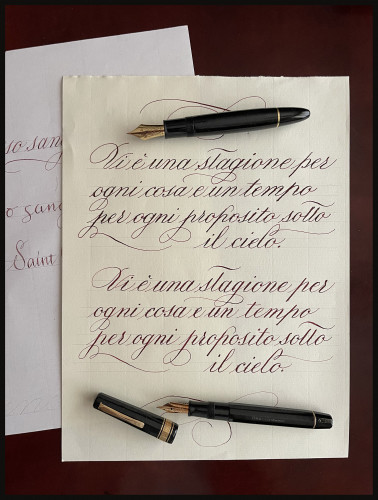 so sang
o sang
Saint
Vi è una stagione per
ogni cosa e un tempo
per ogni proposito sotto
il cielo.
Vi è una stagione per
ogni cosa e un tempo
per ogni proposito sotto
il cielo.